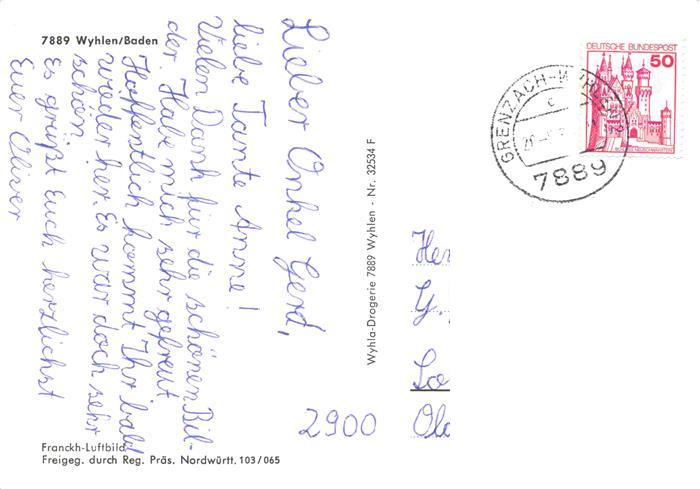 7889 Wyhlen/Baden
Lieber Onkel Gerd,
liebe Tante Anne!
Vielen Dank für die schönen Bil-
der. Habe mich sehr gefreut
Hoffentlich kommt Ihr bald
wieder her. Es war doch sehr
schön.
Es grüßt Euch herzlichst
Euer Oliver
Franckh-Luftbild
Freigeg. durch Reg. Präs. Nordwürtt. 103/065
Wyhla-Drogerie 7889 Wyhlen - Nr. 32534 F
DEUTSCHE BUNDESPOST
50
GRENZACH-WYHLEN
7889
Her
G.
2900